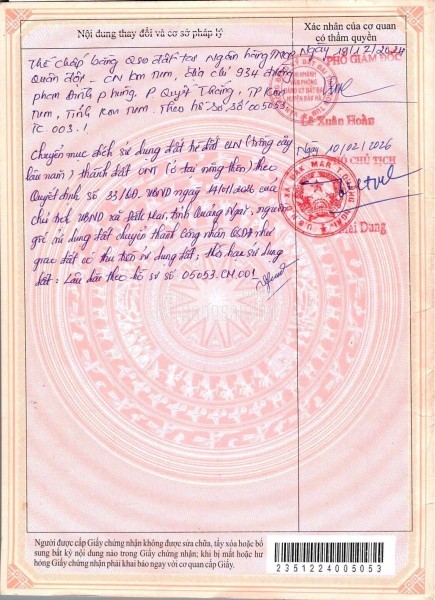 Nội dung thay đổi và cơ sở pháp lý
Xác nhận của cơ quan có thẩm quyền
Thế chấp bằng QSD đất tại Ngân hàng TMCP
Quân đội - CN Kon Tum, Địa chỉ 934 đường
Phan Đình Phùng, P Quyết Thắng, TP Kon
Tum, Tỉnh Kon Tum. Theo hồ sơ số 05053.
TC 003.1
Ngày 18/12/2024
PHÓ GIÁM ĐỐC
Lê Xuân Hoàn
Chuyển mục đích sử dụng đất từ đất CLN (trồng cây
lâu năm) thành đất ONT (ở tại nông thôn) theo
Quyết định số 33/QĐ.UBND ngày 14/01/2026 của
chủ tịch UBND xã Đăk Mar, tỉnh Quảng Ngãi, nguồn
gốc sử dụng đất chuyển thành Công nhận QSDĐ như
giao đất có thu tiền sử dụng đất; thời hạn sử dụng
đất: Lâu dài theo hồ sơ số 05053.CM.001
Ngày 10/02/2026
PHÓ CHỦ TỊCH
Dung
Người được cấp Giấy chứng nhận không được sửa chữa, tẩy xóa hoặc bổ
sung bất kỳ nội dung nào trong Giấy chứng nhận; khi bị mất hoặc hư
hỏng Giấy chứng nhận phải khai báo ngay với cơ quan cấp Giấy.
2351224005053